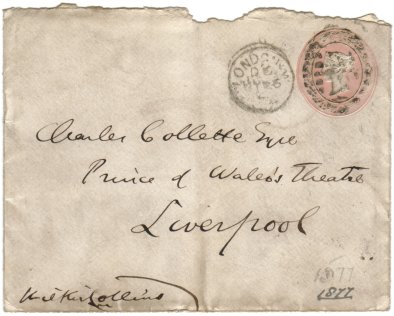 LONDON
Charles Collette Esqre
Prince of Wales's Theatre
Liverpool
Wilkie Collins
1877
1877